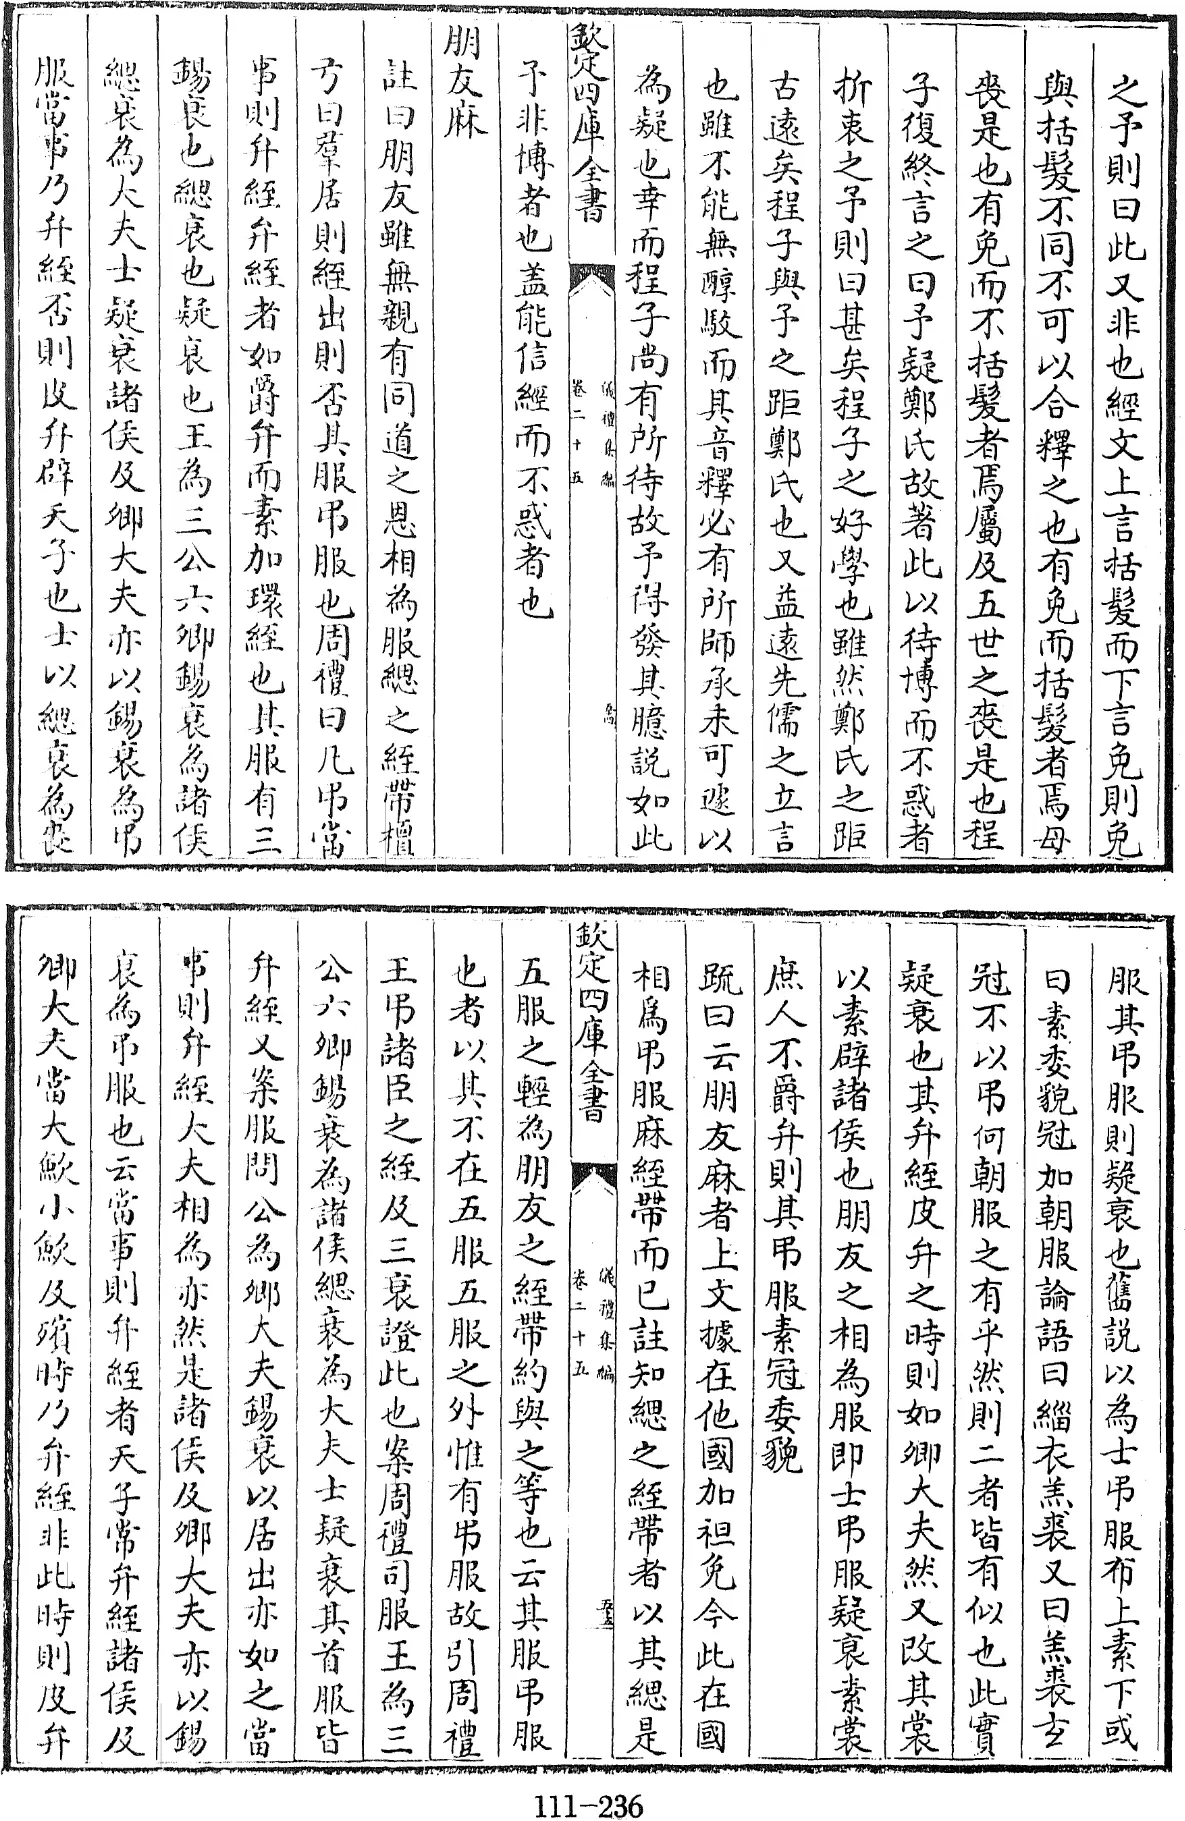 之予則曰此又非也經文上言括髮而下言免則免
與括髮不同不可以合釋之也有免而括髮者焉母
喪是也有免而不括髮者焉屬及五世之喪是也程
子復終言之曰予疑鄭氏故著此以待博而不惑者
折衷之予則曰甚矣程子之好學也雖然鄭氏之距
古遠矣程子與予之距鄭氏也又益遠先儒之立言
也雖不能無醇駁而其音釋必有所師承未可遽以
為疑也幸而程子尚有所待故予得發其臆説如此
欽定四庫全書
儀禮集編
卷二十五
予非博者也盖能信經而不惑者也
朋友麻
註曰朋友雖無親有同道之恩相為服緦之絰帶檀
弓曰羣居則絰出則否其服弔服也周禮曰凡弔當
事則弁絰弁絰者如爵弁而素加環絰也其服有三
錫衰也緦衰也疑衰也王為三公六卿錫衰為諸侯
緦衰為大夫士疑衰諸侯及卿大夫亦以錫衰為弔
服當事乃弁絰否則皮弁辟天子也士以緦衰為喪
服其弔服則疑衰也舊説以為士弔服布上素下或
曰素委貌冠加朝服論語曰緇衣羔裘又曰羔裘玄
冠不以弔何朝服之有乎然則二者皆有似也此實
疑衰也其弁絰皮弁之時則如卿大夫然又改其裳
以素辟諸侯也朋友之相為服即士弔服疑衰素裳
庶人不爵弁則其弔服素冠委貌
疏曰云朋友麻者上文據在他國加袒免今此在國
相為弔服麻絰帶而已註知緦之絰帶者以其緦是
欽定四庫全書
儀禮集編
卷二十五
五服之輕為朋友之絰帶約與之等也云其服弔服
也者以其不在五服五服之外惟有弔服故引周禮
王弔諸臣之絰及三衰證此也案周禮司服王為三
公六卿錫衰為諸侯緦衰為大夫士疑衰其首服皆
弁絰又案服問公為卿大夫錫衰以居出亦如之當
事則弁絰大夫相為亦然是諸侯及卿大夫亦以錫
衰為弔服也云當事則弁絰者天子常弁絰諸侯及
卿大夫當大歛小歛及殯時乃弁絰非此時則皮弁
111-236